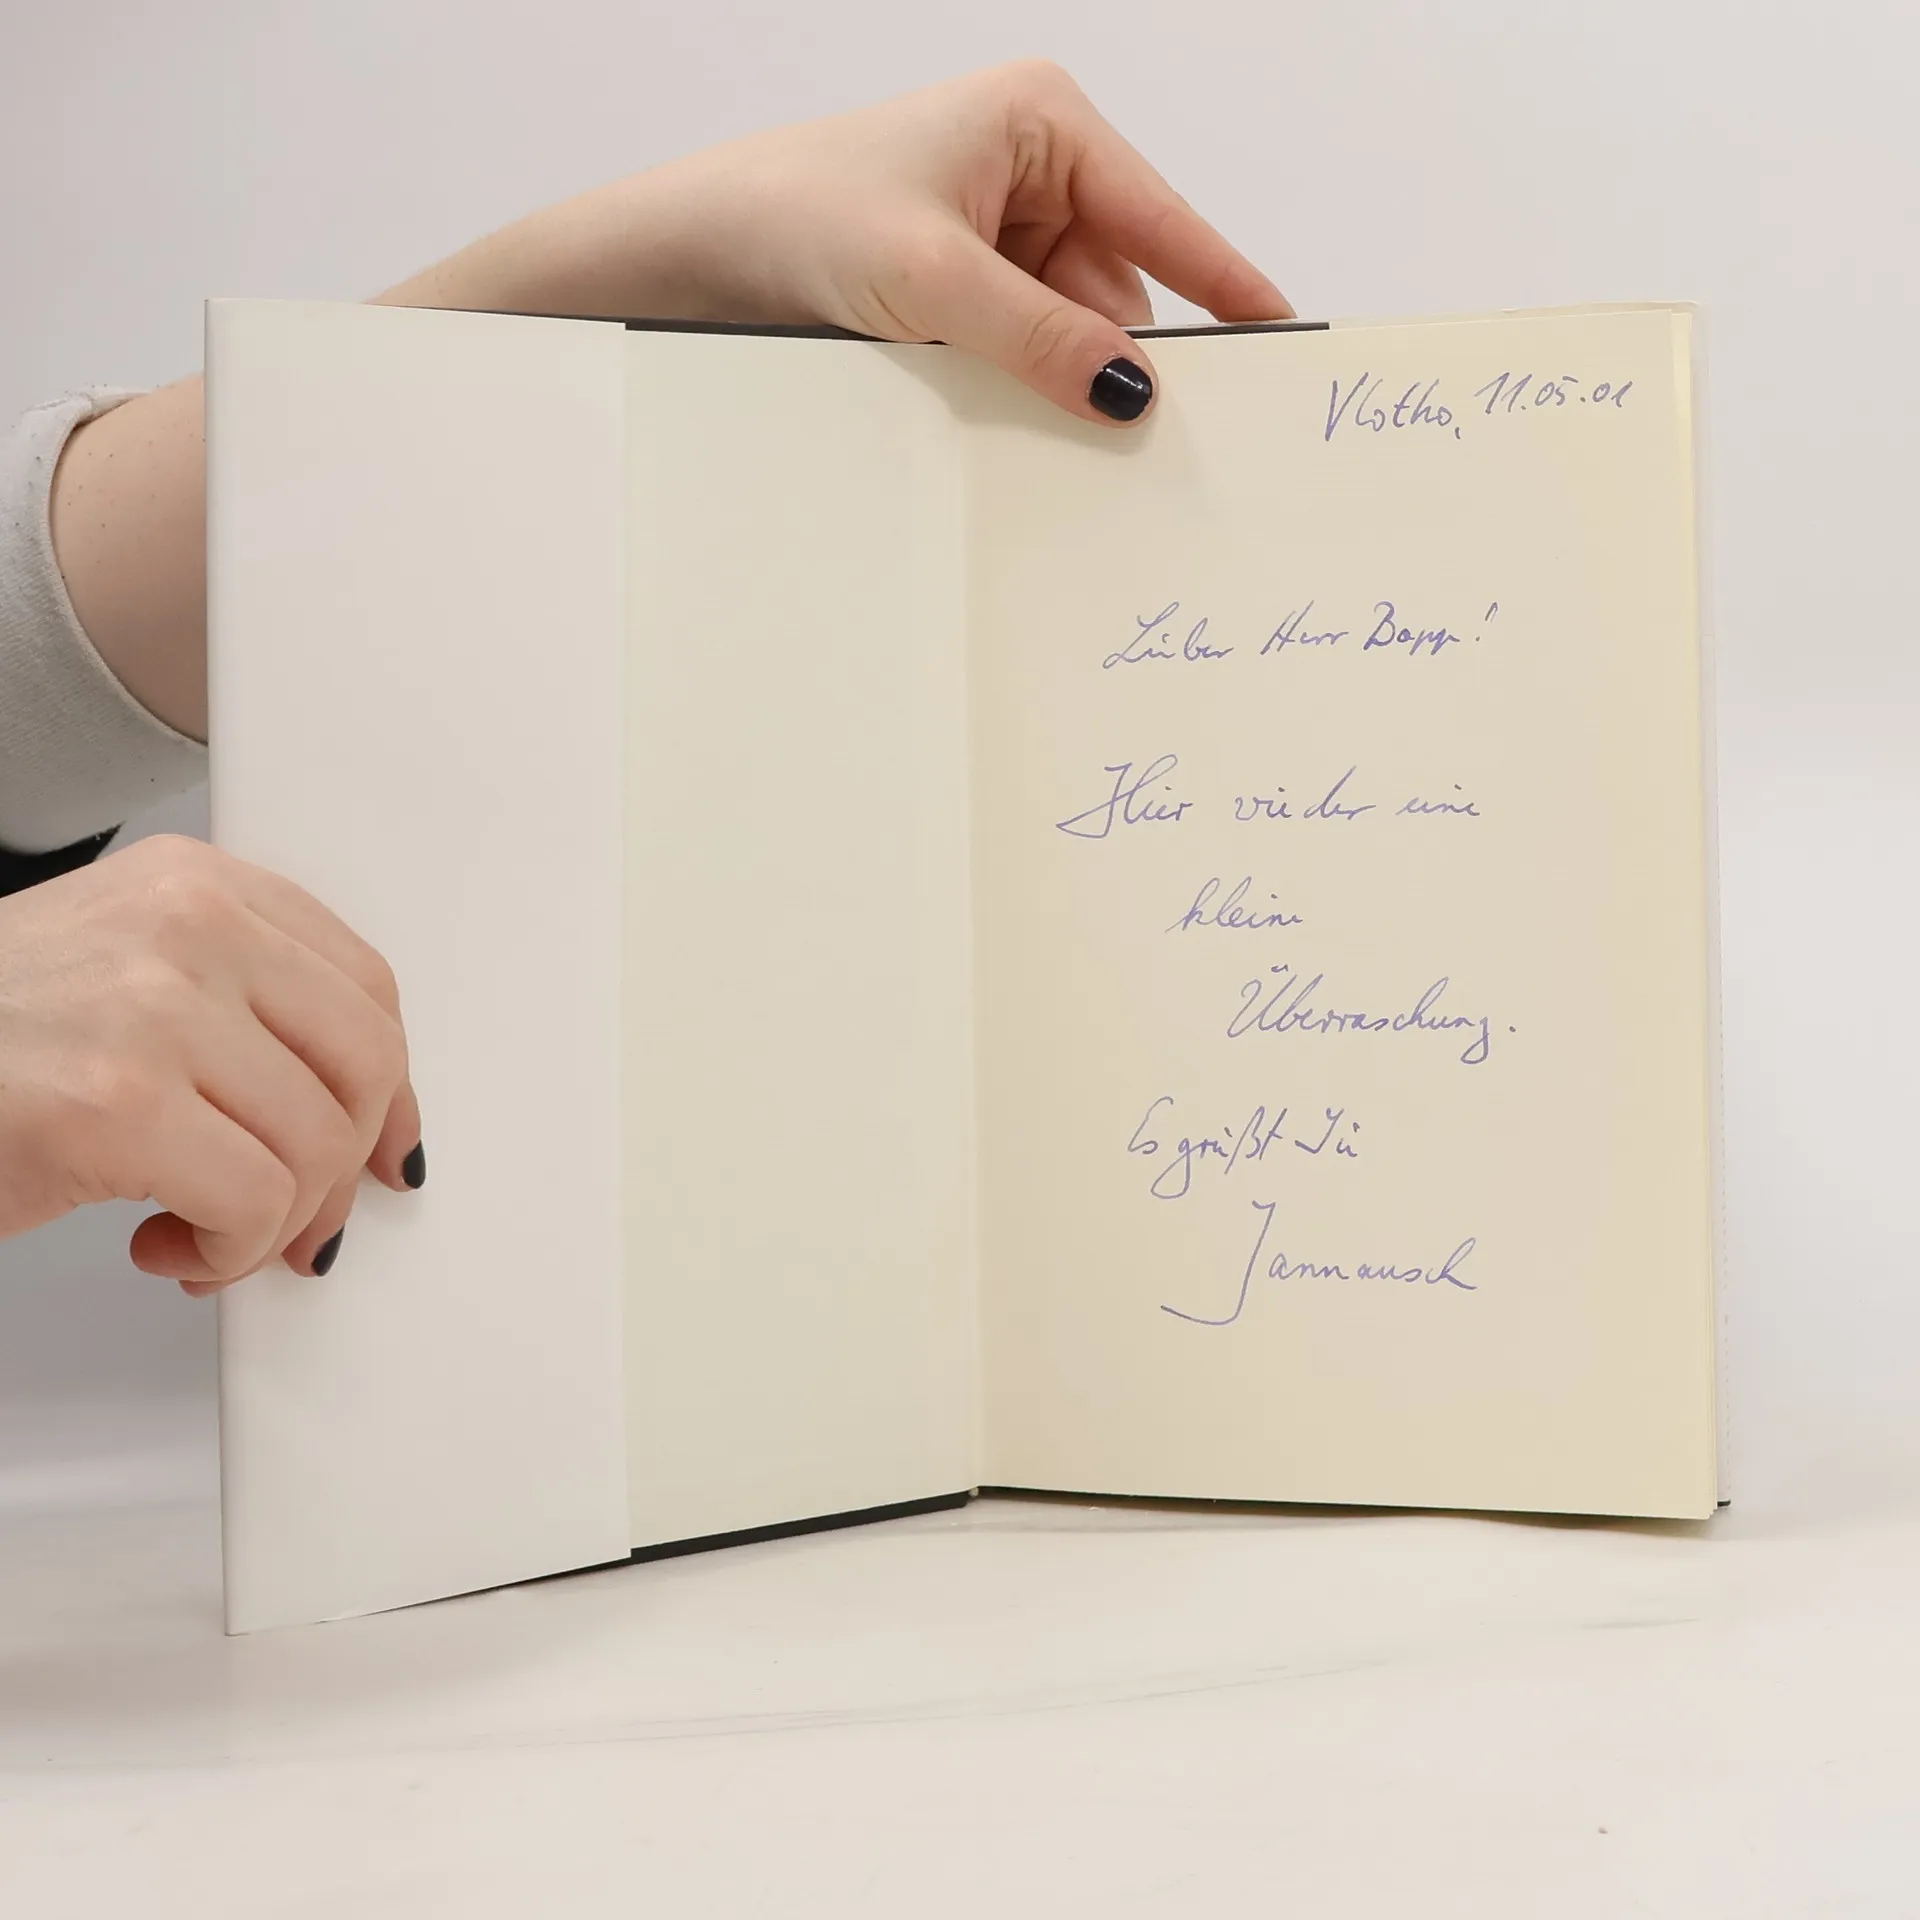 Vlotho, 11.05.01
Lieber Herr Bopp!
Hier wieder eine
kleine
Überraschung.
Es grüßt Sie
Jannausch